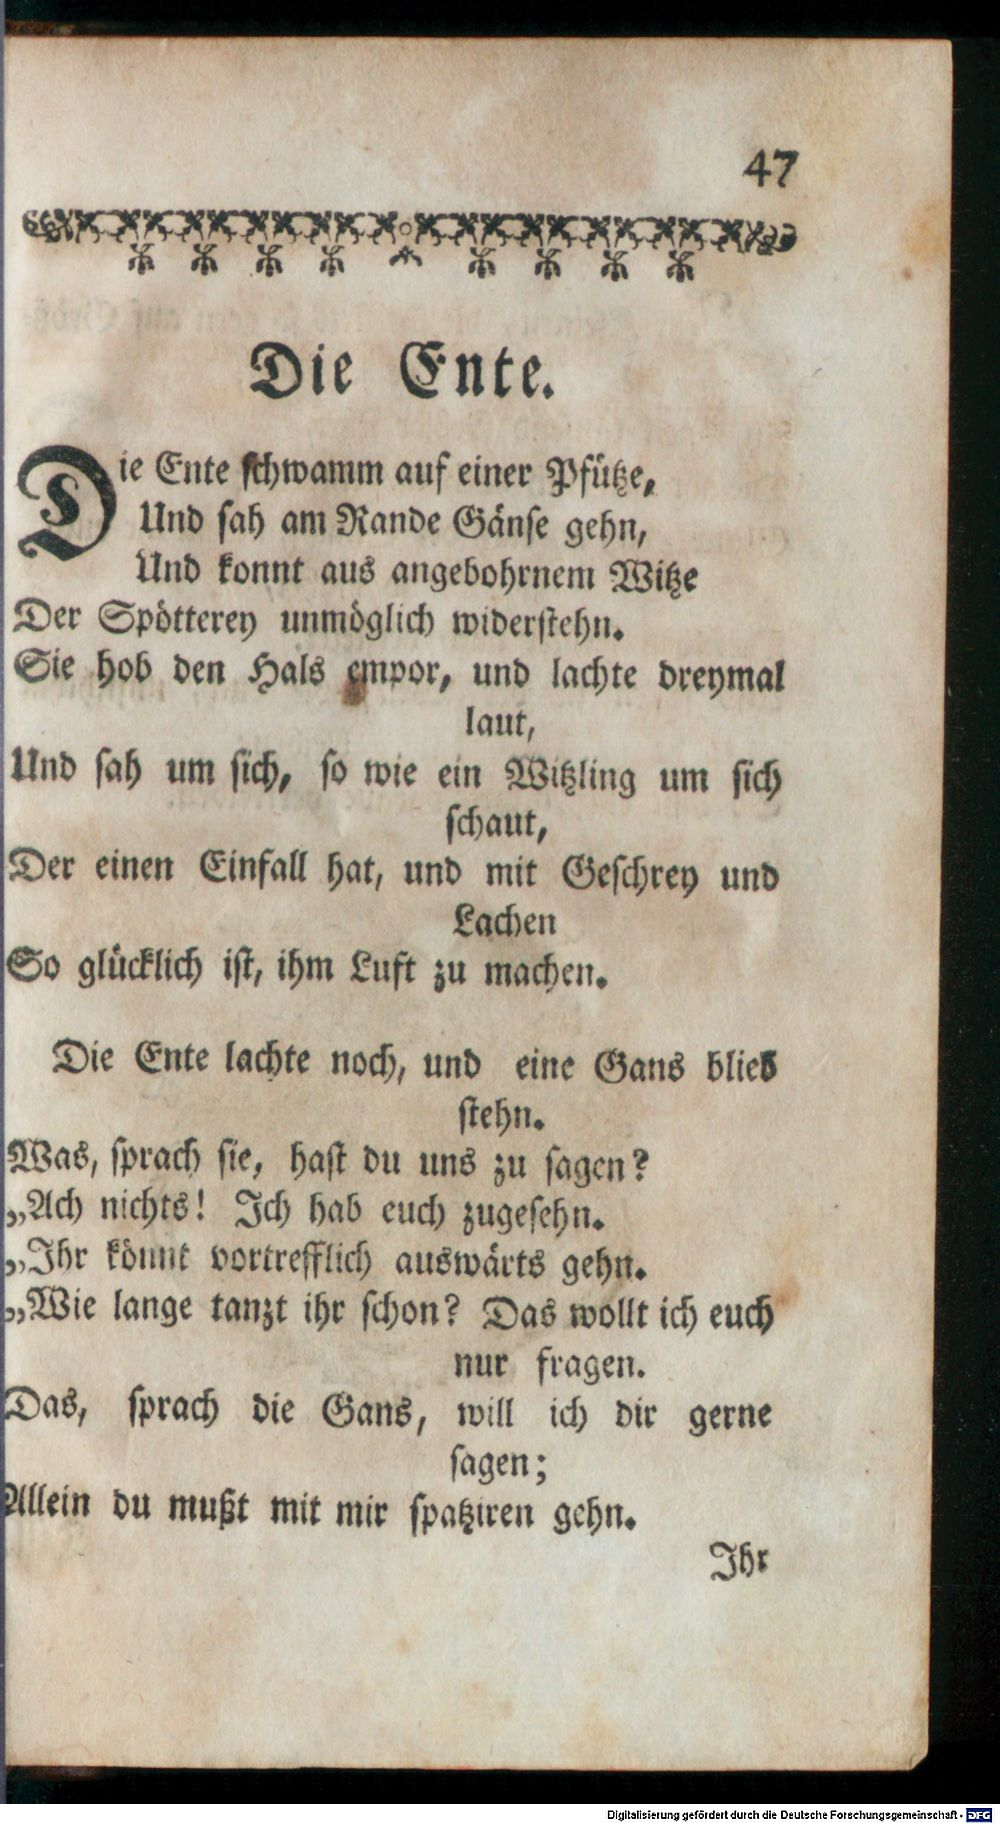 47
Die Ente.
Die Ente schwamm auf einer Pfütze,
Und sah am Rande Gänse gehn,
Und konnt aus angebohrnem Witze
Der Spötterey unmöglich widerstehn.
Sie hob den Hals empor, und lachte dreymal
laut,
Und sah um sich, so wie ein Witzling um sich
schaut,
Der einen Einfall hat, und mit Geschrey und
Lachen
So glücklich ist, ihm Luft zu machen.
Die Ente lachte noch, und eine Gans blieb
stehn.
Was, sprach sie, hast du uns zu sagen?
„Ach nichts! Ich hab euch zugesehn.
„Ihr könnt vortrefflich auswärts gehn.
„Wie lange tanzt ihr schon? Das wollt ich euch
nur fragen.
Das, sprach die Gans, will ich dir gerne
sagen;
Allein du mußt mit mir spatziren gehn.
Ihr
Digitalisierung gefördert durch die Deutsche Forschungsgemeinschaft - DFG